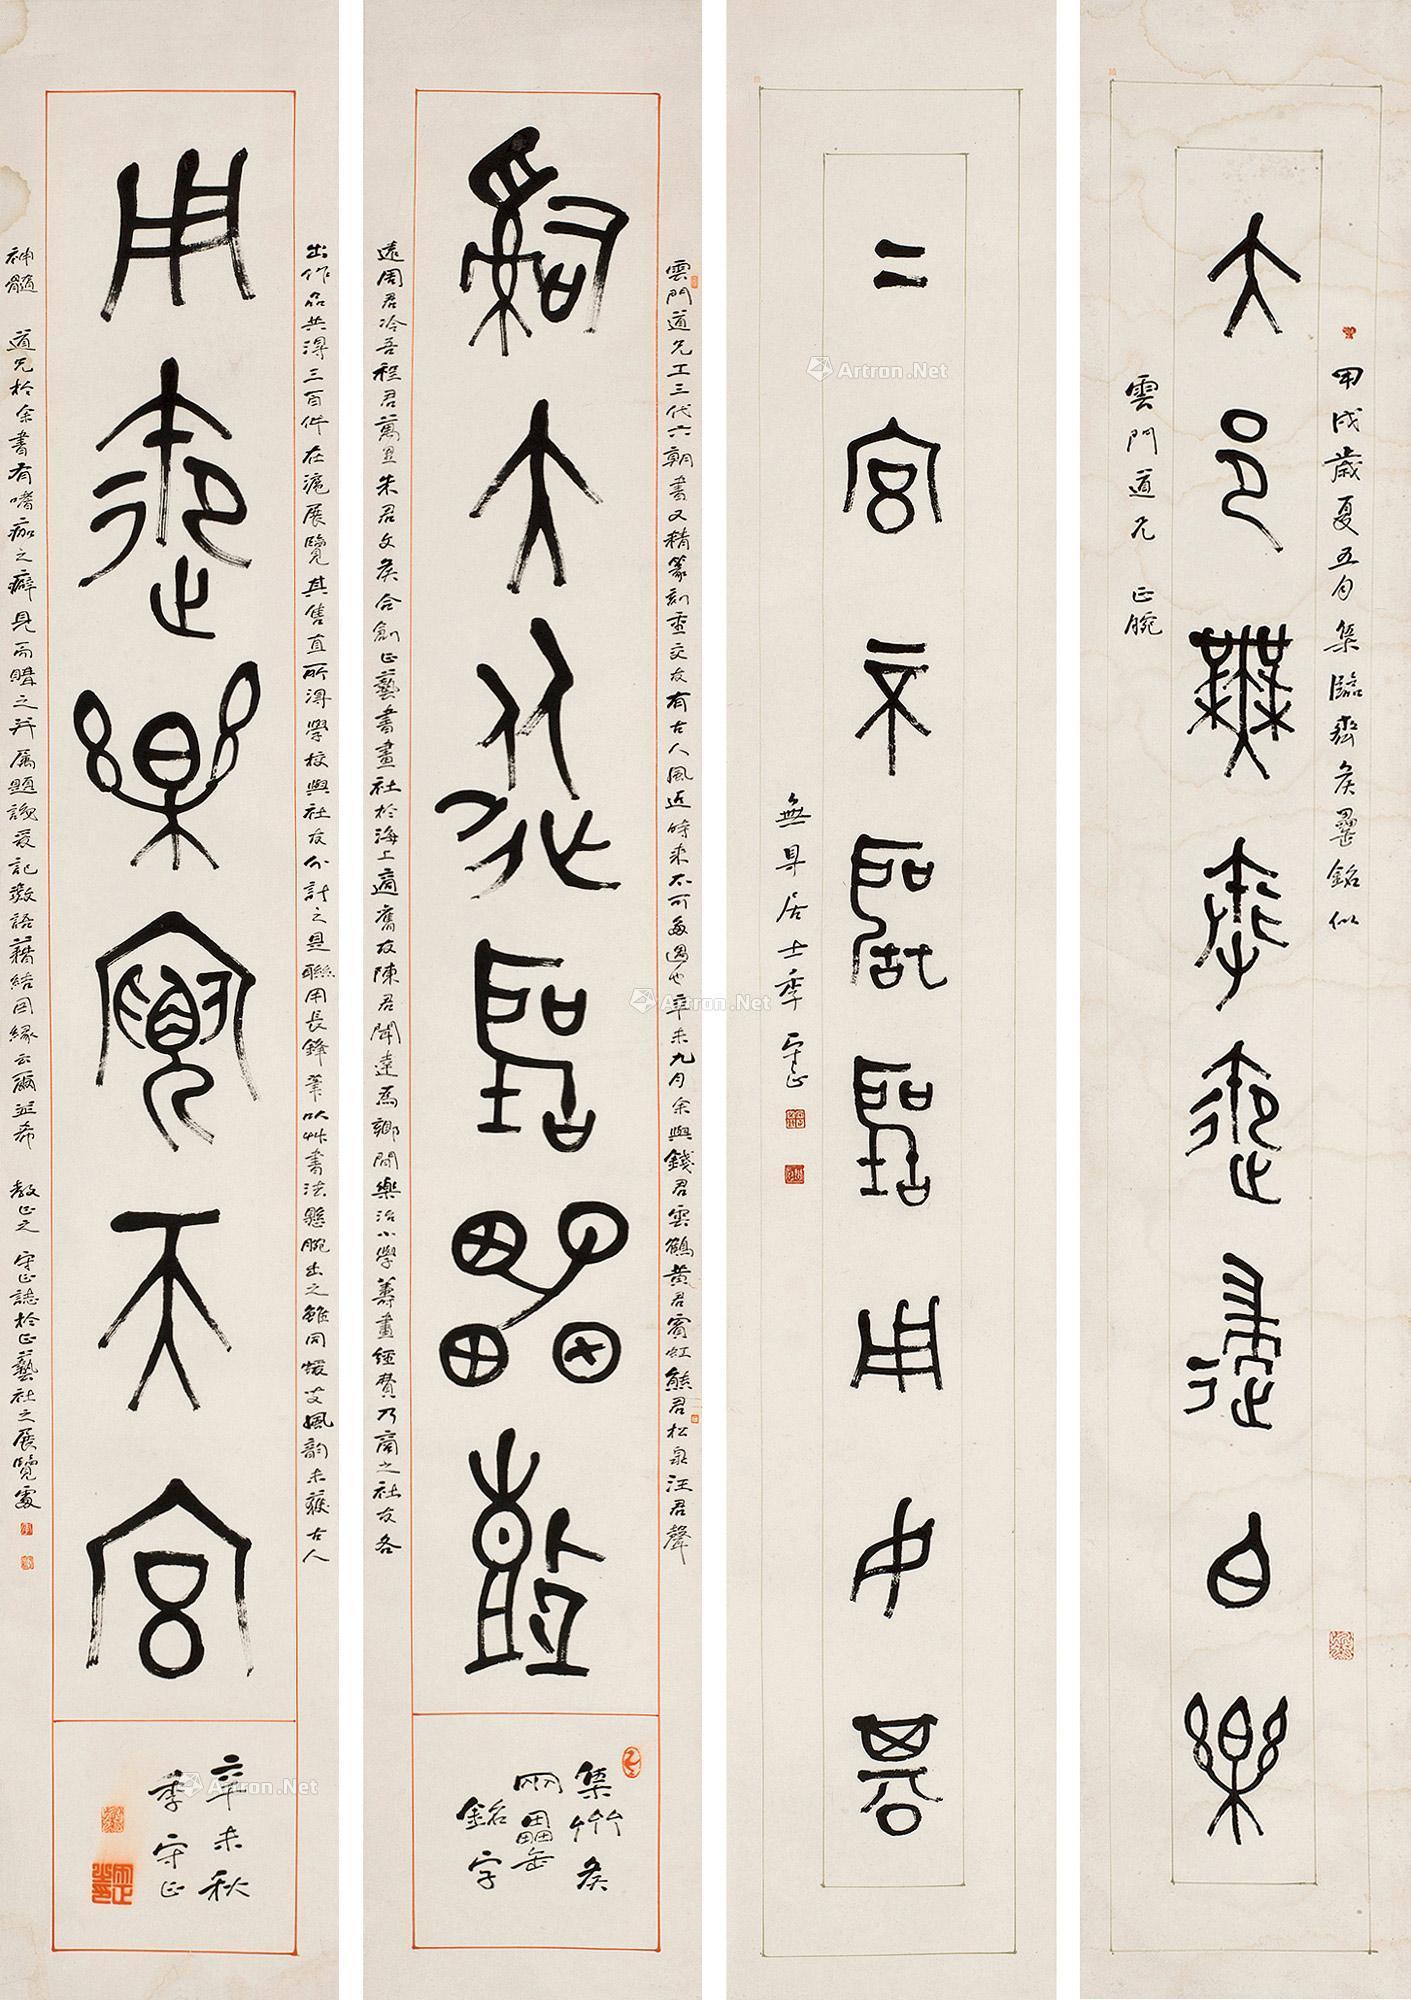 甲戌歲夏五月集臨齊侯罍銘似
大邑無奉走歸白樂
雲門道兄 正腕
二宮下用中
無身居士季守正
雲門道兄工三代六朝書又精篆刻重交友有古人風近時來不可多遇也辛未九月余與錢君雲鶴黃君賓虹熊君松泉汪君聲
遠周君冷吾程君萬里朱君文侯合創正藝書畫社於海上適舊友陳君聞達為鄉間樂治小學籌畫經費乃商之社友各
出作品共得三百件在滬展覽其售直所得學校與社友分計之是聯用長鋒筆以草書法懸腕出之雖同蝯叟風韵未獲古人
神髓 道兄於余書有嗜痂之癖見而購之并屬題識爰記數語藉結因緣云爾並希 教正之 守正誌於正藝社之展覽處
辭大從
集齊侯
兩罍
銘字
用走樂寶天宮
辛未秋
季守正
Artron.Net
Artron.Net
Artron.Net